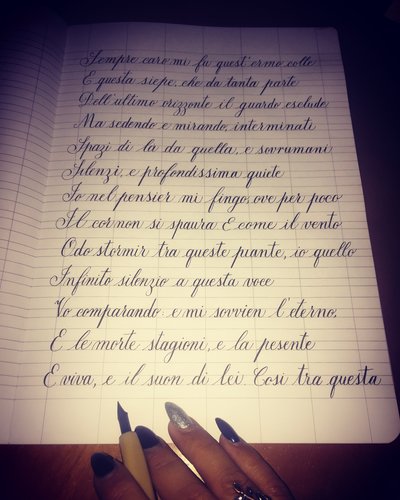 Sempre caro mi fu quest'ermo colle
E questa siepe, che da tanta parte
Dell'ultimo orizzonte il guardo esclude
Ma sedendo e mirando, interminati
Spazi di la da quella, e sovrumani
Silenzi, e profondissima quiete
Io nel pensier mi fingo, ove per poco
Il cor non si spaura E come il vento
Odo stormir tra queste piante, io quello
Infinito silenzio a questa voce
Vo comparando: e mi sovvien l'eterno,
E le morte stagioni, e la pesente
E viva, e il suon di lei. Così tra questa